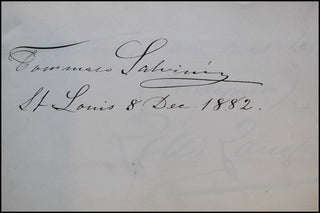 Tommaso Salvini
St Louis 8. Dec. 1882.